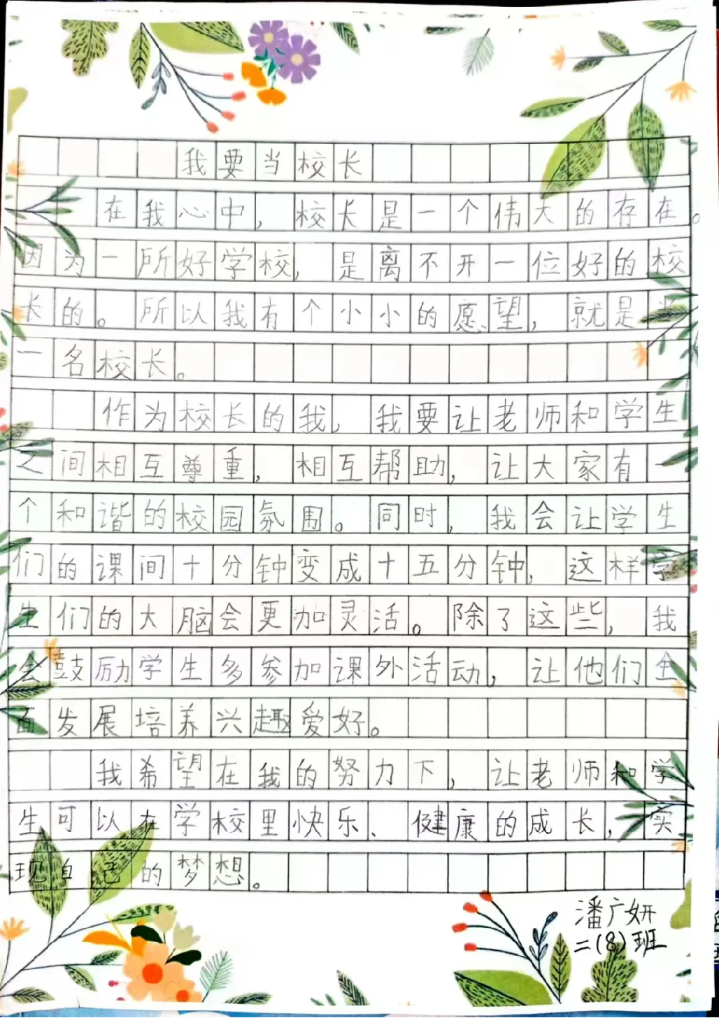 我要当校长
在我心中，校长是一个伟大的存在。
因为一所好学校，是离不开一位好的校
长的。所以我有个小小的愿望，就是当
一名校长。
作为校长的我，我要让老师和学生
之间相互尊重，相互帮助，让大家有一
个和谐的校园氛围。同时，我会让学生
们的课间十分钟变成十五分钟，这样学
生们的大脑会更加灵活。除了这些，我
会鼓励学生多参加课外活动，让他们全
面发展培养兴趣爱好。
我希望在我的努力下，让老师和学
生可以在学校里快乐、健康的成长，实
现自己的梦想。
潘广妍
二(8)班